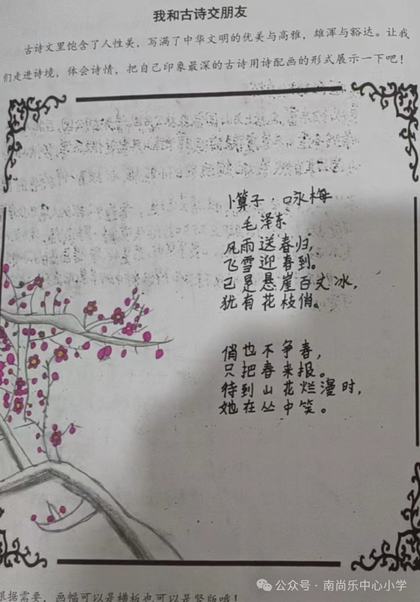 我和古诗交朋友
古诗文里饱含了人性美，写满了中华文明的优美与高雅，雄浑与豁达。让我
们走进诗境，体会诗情，把自己印象最深的古诗用诗配画的形式展示一下吧！
卜算子·咏梅
毛泽东
风雨送春归，
飞雪迎春到。
已是悬崖百丈冰，
犹有花枝俏。
俏也不争春，
只把春来报。
待到山花烂漫时，
她在丛中笑。
根据需要，画幅可以是横板也可以是竖版哦！
公众号·南尚乐中心小学